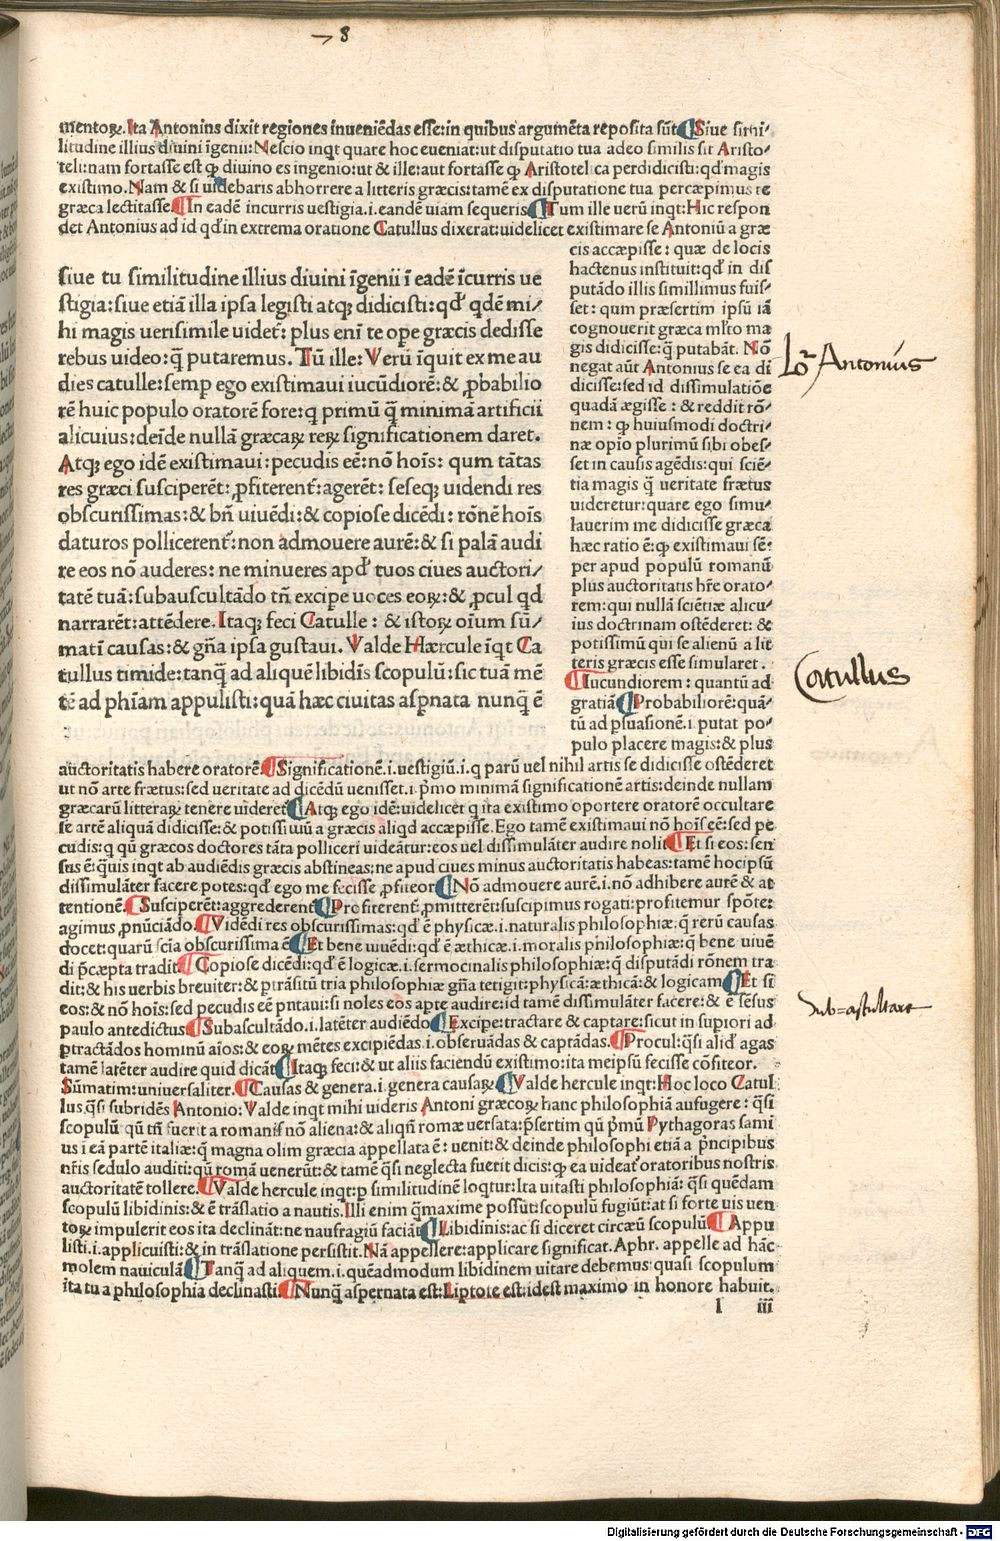 8
mentoꝝ. Ita Antonius dixit regiones inueniēdas esse: in quibus argumēta reposita sūt ¶ Siue simi-
litudine illius diuini īgenii: Nescio inqt quare hoc eueniat: ut disputatio tua adeo similis sit Aristo-
teli: nam fortasse est ꝙ diuino es ingenio: ut & ille: aut fortasse ꝙ Aristotelica perdidicisti: qđ magis
existimo. Nam & si uidebaris abhorrere a litteris græcis: tamē ex disputatione tua percæpimus te
græca lectitasse. ¶ In eadē incurris uestigia .i. eandē uiam sequeris ¶ Tum ille uerū inqt: Hic respon
det Antonius ad id qđ in extrema oratione Catullus dixerat: uidelicet existimare se Antoniū a græ
cis accæpisse: quæ de locis
hactenus instituit: qđ in dis
putādo illis simillimus fuis-
set: qum præsertim ipsū iā
cognouerit græca mlto ma
gis didicisse: q̄ putabāt. Nō
negat aūt Antonius se ea di
dicisse: sed id dissimulatiōe
quadā ægisse: & reddit rō-
nem: ꝙ huiusmodi doctri-
næ opīo plurimū sibi obes-
set in causis agēdis: qui sciē-
tia magis q̄ ueritate frætus
uideretur: quare ego simu-
lauerim me didicisse græca
hæc ratio ē: ꝙ existimaui sē-
per apud populū romanū
plus auctoritatis hr̄e orato-
rem: qui nullā sciētiæ alicu-
ius doctrinam ostēderet: &
potissimū qui se alienū a lit
teris græcis esse simularet.
¶ Iucundiorem: quantū ad
gratiā ¶ Probabiliorē: quā-
tū ad psuasionē .i. putat po-
pulo placere magis: & plus
siue tu similitudine illius diuini īgenii ī eadē īcurris ue
stigia: siue etiā illa ipsa legisti atq; didicisti: qđ qdē mi-
hi magis uerisimile uidet̄: plus enī te ope græcis dedisse
rebus uideo: q̄ putaremus. Tū ille: Verū īquit ex me au
dies catulle: semp ego existimaui iucūdiorē: & ꝓbabilio
rē huic populo oratorē fore: q primū q̄ minimā artificii
alicuius: deīde nullā græcaꝝ reꝝ significationem daret.
Atq; ego idē existimaui: pecudis eē: nō hoīs: qum tātas
res græci susciperēt: ꝓfiterent̄: agerēt: seseq; uidendi res
obscurissimas: & bn̄ uiuēdi: & copiose dicēdi: rōnē hoīs
daturos pollicerent̄: non admouere aurē: & si palā audi
re eos nō auderes: ne minueres apđ tuos ciues auctori-
tatē tuā: subauscultādo tn̄ excipe uoces eoꝝ: & ꝓcul qd
narrarēt: attēdere. Itaq; feci Catulle: & istoꝝ oīum sū-
matī causas: & gn̄a ipsa gustaui. Valde Hærcule īqt Ca
tullus timide: tanq̄ ad aliquē libidīs scopulū: sic tuā mē
tē ad phīam appulisti: quā hæc ciuitas aspnata nunq̄ ē
auctoritatis habere oratorē. ¶ Significationē .i. uestigiū .i. q parū uel nihil artis se didicisse ostēderet
ut nō arte frætus: sed ueritate ad dicēdū uenisset .i. pmo minimā significationē artis: deinde nullam
græcarū litteraꝝ tenere uideret̄ ¶ Atq; ego idē: uidelicet q ita existimo oportere oratorē occultare
se artē aliquā didicisse: & potissimū a græcis aliqd accæpisse. Ego tamē existimaui nō hoīs eē: sed pe
cudis: q qū græcos doctores tāta polliceri uideātur: eos uel dissimulāter audire nolit ¶ Et si eos: sen
sus ē: quis inqt ab audiēdis græcis abstineas: ne apud ciues minus auctoritatis habeas: tamē hoc ipsū
dissimulāter facere potes: qđ ego me fecisse ꝓfiteor ¶ Nō admouere aurē .i. nō adhibere aurē & at
tentionē. ¶ Susciperēt: aggrederent̄ ¶ Profiterent̄ ꝓmitterēt: suscipimus rogati: profitemur spōte:
agimus ꝓnūciādo. ¶ Vidēdi res obscurissimas: qđ ē physicæ .i. naturalis philosophiæ: q̄ rerū causas
docet: quarū scīa obscurissima ē ¶ Et bene uiuēdi: qđ ē æthicæ .i. moralis philosophiæ: q̄ bene uiuē
di p̄cæpta tradit ¶ Copiose dicēdi: qđ ē logicæ .i. sermocinalis philosophiæ: q̄ disputādi rōnem tra
dit: & his uerbis breuiter: & ptrāsitū tria philosophiæ gn̄a tetigit: physicā: æthicā: & logicam ¶ Et si
eos: & nō hoīs: sed pecudis eē putaui: si noles eos apte audire: id tamē dissimulāter facere: & ē sēsus
paulo antedictus ¶ Subascultādo .i. latēter audiēdo ¶ Excipe: tractare & captare: sicut in supiori ad
ptractādos hominū aīos: & eoꝝ mētes excipiēdas .i. obseruādas & captādas. ¶ Procul: q̄si aliđ agas
tamē latēter audire quid dicāt ¶ Itaq; feci: & ut aliis faciendū existimo: ita meipsū fecisse cōfiteor.
Sūmatim: uniuersaliter. ¶ Causas & genera .i. genera causaꝝ. ¶ Valde hercule inqt: Hoc loco Catul
lus q̄si subridēs Antonio: Valde inqt mihi uideris Antoni græcoꝝ hanc philosophiā aufugere: q̄si
scopulū qū tn̄ fuerit a romanis nō aliena: & aliqn̄ romæ uersata: p̄sertim qū p̄mū Pythagoras sami
us ī eā partē italiæ: q̄ magna olim græcia appellata ē: uenit: & deinde philosophi etiā a p̄ncipibus
nr̄is sedulo auditi: qū romā uenerūt: & tamē q̄si neglecta fuerit dicis: ꝙ ea uideat̄ oratoribus nostris
auctoritatē tollere. ¶ Valde hercule inqt: p similitudinē loqtur: Ita uitasti philosophiā: q̄si quēdam
scopulū libidinis: & ē trāslatio a nautis. Illi enim q̄maxime possūt: scopulū fugiūt: at si forte uis uen
toꝝ impulerit eos ita declināt: ne naufragiū faciāt ¶ Libidinis: ac si diceret circæū scopulū ¶ Appu
listi .i. applicuisti: & in trāslatione persistit. Nā appellere: applicare significat. Aphr. appelle ad hāc
molem nauiculā ¶ Tanq̄ ad aliquem .i. quēadmodum libidinem uitare debemus quasi scopulum
ita tu a philosophia declinasti. ¶ Nunq̄ aspernata est: Liptote est: idest maximo in honore habuit.
l iii
Antonius
Catullus
Sub=ascultare
Digitalisierung gefördert durch die Deutsche Forschungsgemeinschaft - DFG